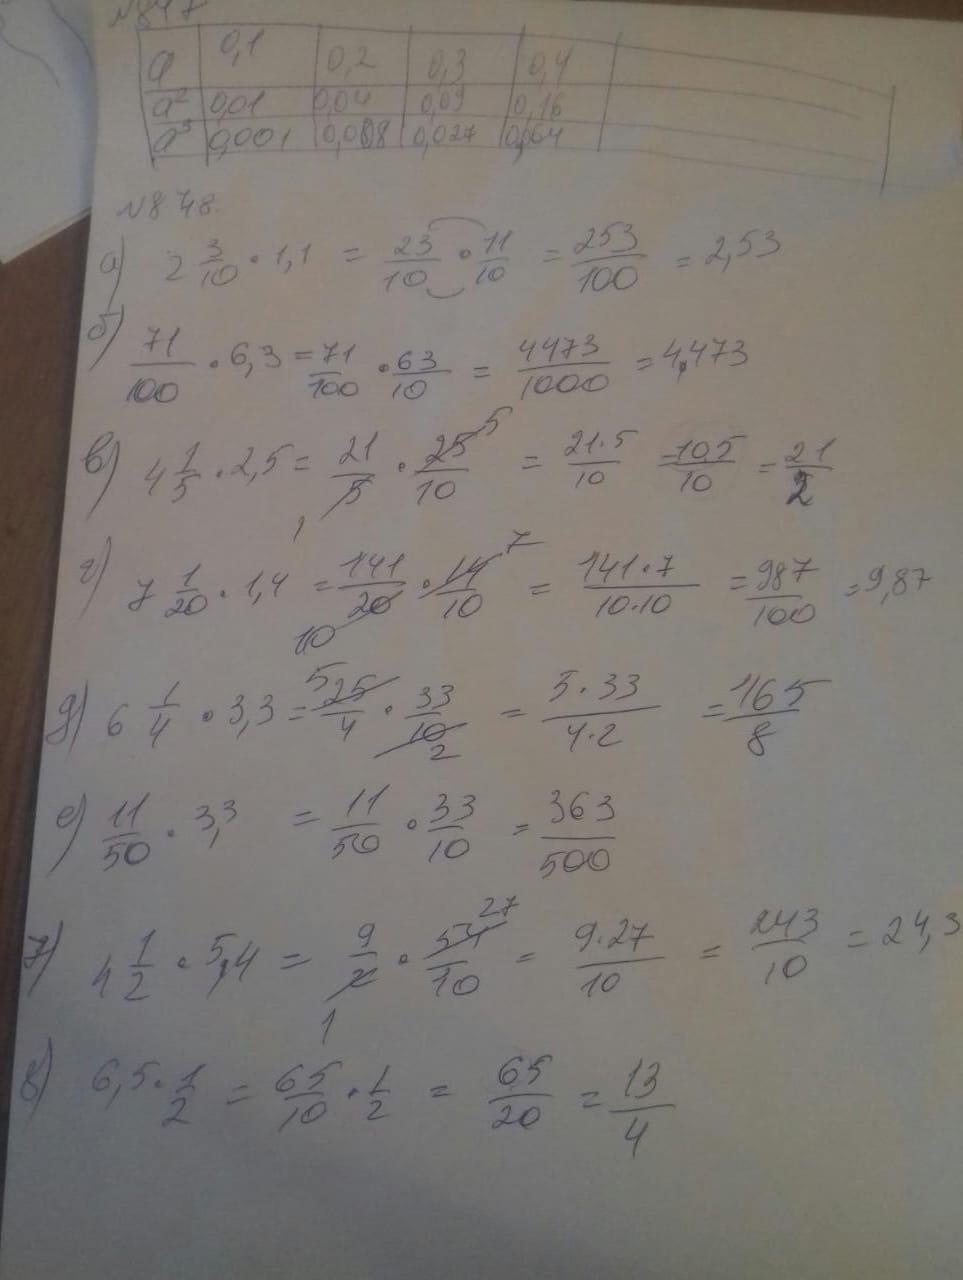 №847
a 0,1 0,2 0,3 0,4
a² 0,01 0,04 0,09 0,16
a³ 0,001 0,008 0,027 0,064
№848.
а) 2 3/10 · 1,1 = 23/10 · 11/10 = 253/100 = 2,53
б) 71/100 · 6,3 = 71/100 · 63/10 = 4473/1000 = 4,473
в) 4 1/5 · 2,5 = 21/5 · 25/10 = 21·5/10 = 105/10 = 21/2
1 5
г) 7 1/20 · 1,4 = 141/20 · 14/10 = 141·7/10·10 = 987/100 = 9,87
10 7
д) 6 1/4 · 3,3 = 25/4 · 33/10 = 5·33/4·2 = 165/8
5 2
е) 11/50 · 3,3 = 11/50 · 33/10 = 363/500
7) 4 1/2 · 5,4 = 9/2 · 54/10 = 9·27/10 = 243/10 = 24,3
1 27
8) 6,5 · 1/2 = 65/10 · 1/2 = 65/20 = 13/4